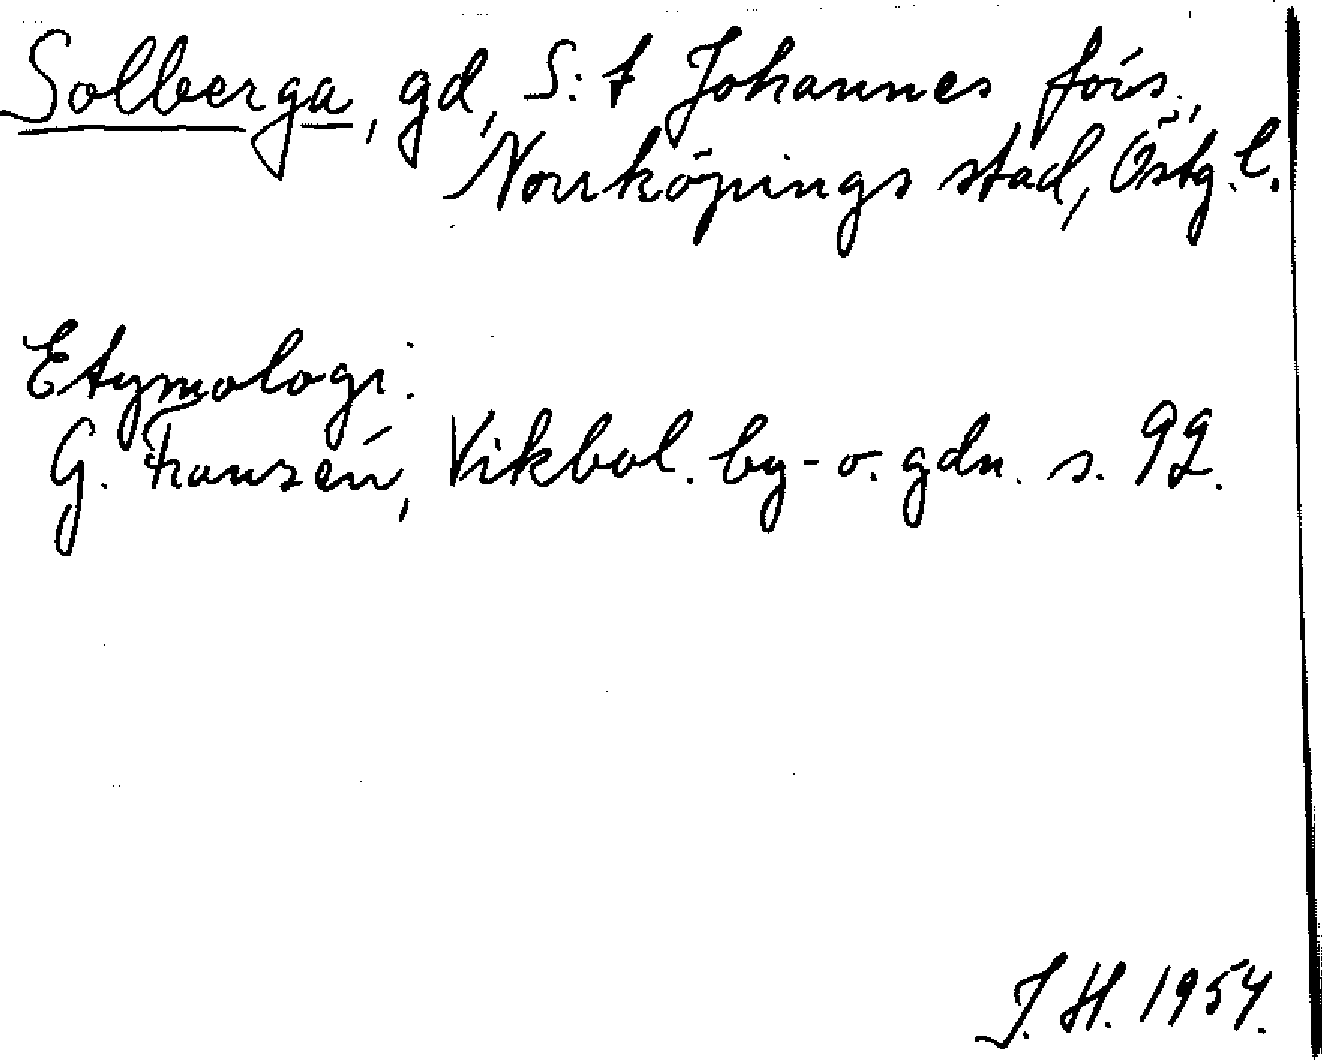 Solberga, gd, S:t Johannes förs.,
Norrköpings stad, Östg. l.
Etymologi:
G. Franzén, Vikbol. by- o. gdn. s. 92.
J. H. 1954.